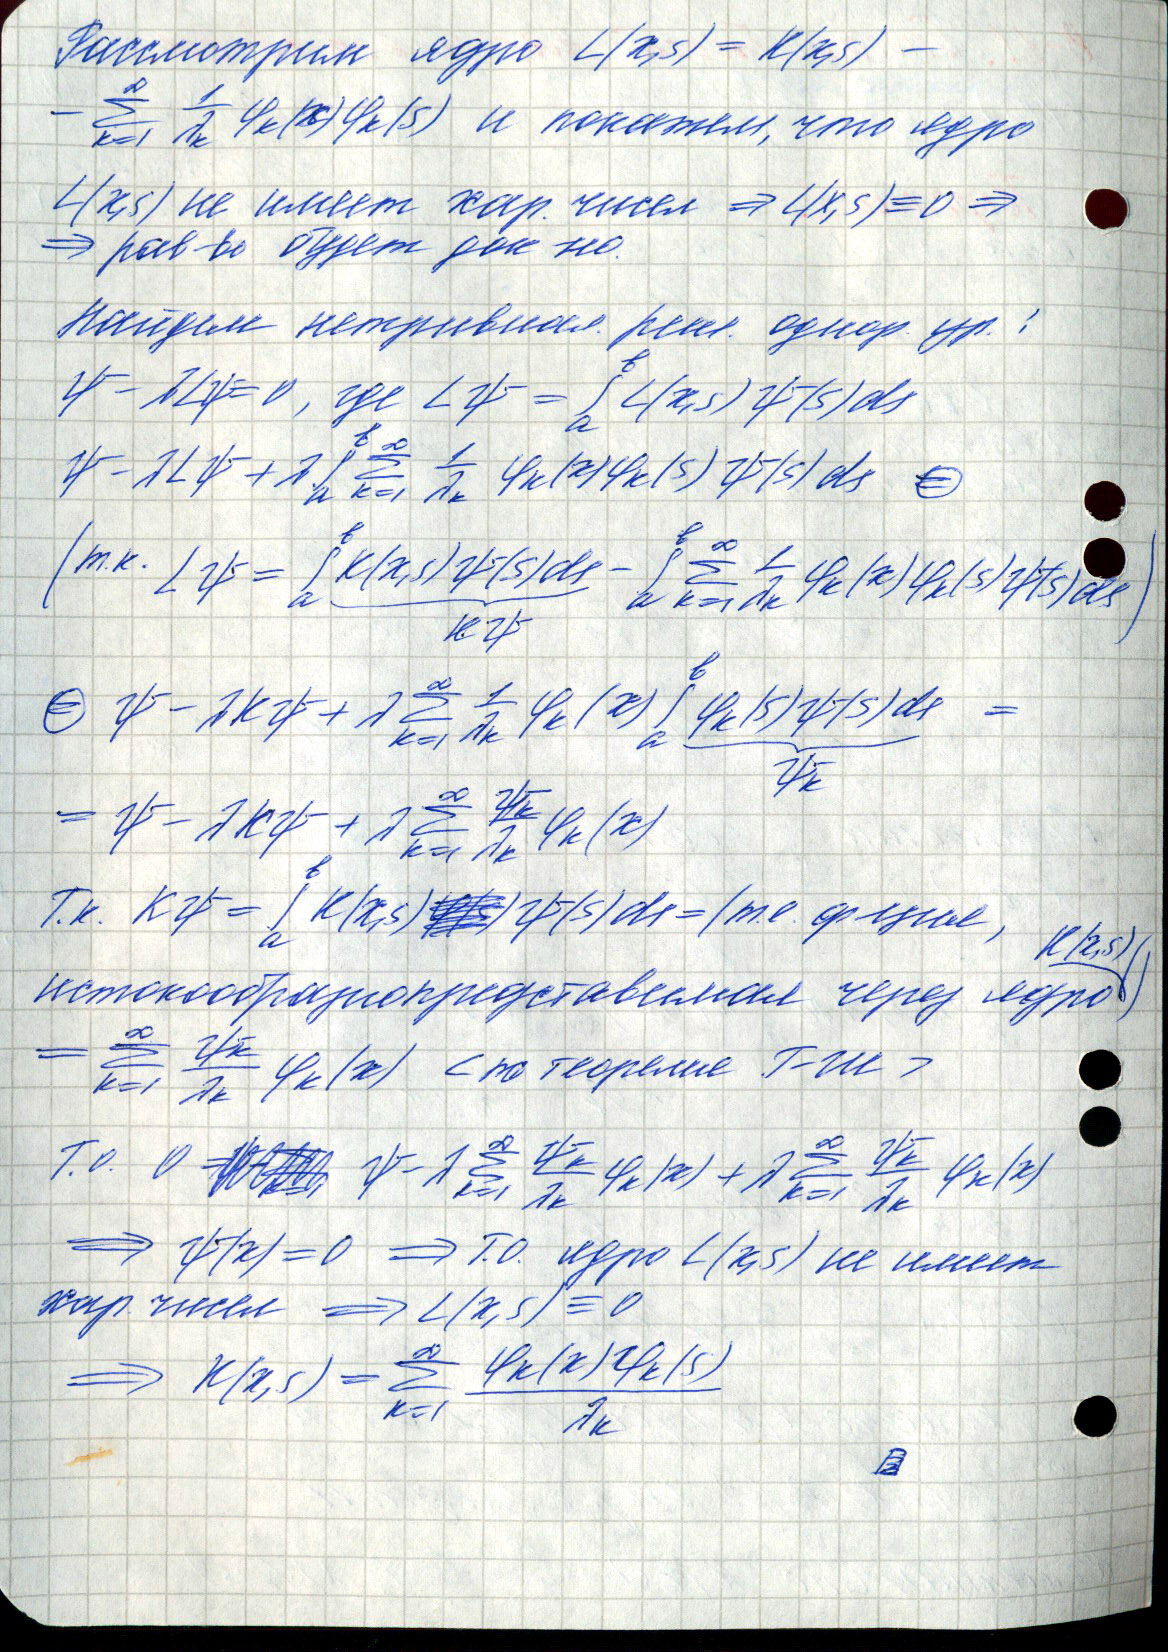 Рассмотрим ядро L(x,s) = K(x,s) –
– ∑_{k=1}^{∞} 1/λ_k φ_k(x)φ_k(s) и покажем, что ядро
L(x,s) не имеет хар. чисел ⇒ L(x,s)≡0 ⇒
⇒ рав-во будет док-но.
Найдем нетривиал. реш. однор. ур.:
ψ – λLψ = 0, где Lψ = ∫_a^b L(x,s)ψ(s)ds
ψ – λLψ + λ∫_a^b ∑_{k=1}^{∞} 1/λ_k φ_k(x)φ_k(s)ψ(s)ds ⊜
(т.к. Lψ = ∫_a^b K(x,s)ψ(s)ds – ∫_a^b ∑_{k=1}^{∞} 1/λ_k φ_k(x)φ_k(s)ψ(s)ds)
Kψ
⊜ ψ – λKψ + λ∑_{k=1}^{∞} 1/λ_k φ_k(x) ∫_a^b φ_k(s)ψ(s)ds =
ψ_k
= ψ – λKψ + λ∑_{k=1}^{∞} ψ_k/λ_k φ_k(x)
Т.к. Kψ = ∫_a^b K(x,s) ψ(s)ds = (т.е. ф-ция,
истокообразнопредставимая через ядро K(x,s))
= ∑_{k=1}^{∞} ψ_k/λ_k φ_k(x) < по теореме Г-Ш >
Т.о. 0 = ψ – λ∑_{k=1}^{∞} ψ_k/λ_k φ_k(x) + λ∑_{k=1}^{∞} ψ_k/λ_k φ_k(x)
⇒ ψ(x) = 0 ⇒ Т.о. ядро L(x,s) не имеет
хар. чисел ⇒ L(x,s) ≡ 0
⇒ K(x,s) = ∑_{k=1}^{∞} φ_k(x)φ_k(s)/λ_k